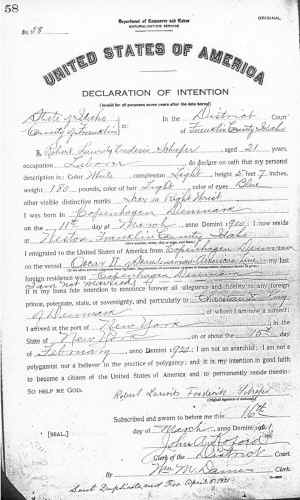 58
ORIGINAL
Department of Commerce and Labor
NATURALIZATION SERVICE
No. 58
UNITED STATES OF AMERICA
DECLARATION OF INTENTION
(Invalid for all purposes seven years after the date hereof)
State of Idaho
In the District Court
County of Franklin ss:
of Franklin County Idaho
I, Robert Lauritz Frederik Schefer, aged 21 years,
occupation Laborer, do declare on oath that my personal
description is: Color White, complexion Light, height 5 feet 7 inches,
weight 150 pounds, color of hair Light, color of eyes Blue
other visible distinctive marks Scar on Right Wrist
I was born in Copenhagen Denmark
on the 11th day of March, anno Domini 1900; I now reside
at Weston Franklin County Idaho
I emigrated to the United States of America from Copenhagen Denmark
on the vessel Oscar II Scandinavian American Line; my last
foreign residence was Copenhagen Denmark
I am not married
It is my bona fide intention to renounce forever all allegiance and fidelity to any foreign
prince, potentate, state, or sovereignty, and particularly to Christian X King
of Denmark, of whom I am now a subject;
I arrived at the port of New York, in the
State of New York, on or about the 15th day
of February, anno Domini 1921; I am not an anarchist; I am not a
polygamist nor a believer in the practice of polygamy; and it is my intention in good faith
to become a citizen of the United States of America and to permanently reside therein:
SO HELP ME GOD.
Robert Lauritz Frederik Schefer
Subscribed and sworn to before me this 16th
[SEAL.]
day of March, anno Domini 1921
John A
Clerk of the District Court.
By Wm M Daines, Clerk.
Sent Duplicate and Fee April 5 1921